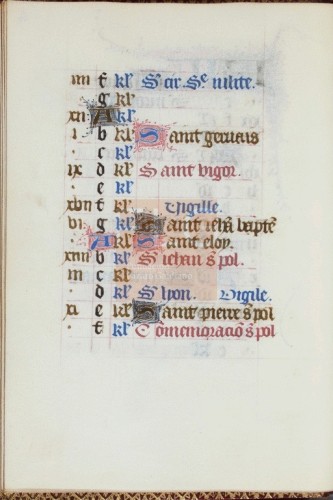 iiii f kł S cir. Se iulite.
g kł
xii A kł
i b kł Saint geruais
c kł
ix d kł Saint vigor.
e kł
xvii f kł Vigille.
vi g kł Saint iehan bapte
A kł Saint eloy.
xiiii b kł S iehan s pol.
iii c kł
d kł S lyon. Vigile.
xi e kł Saint pierre s pol
f kł Comemoracio s pol